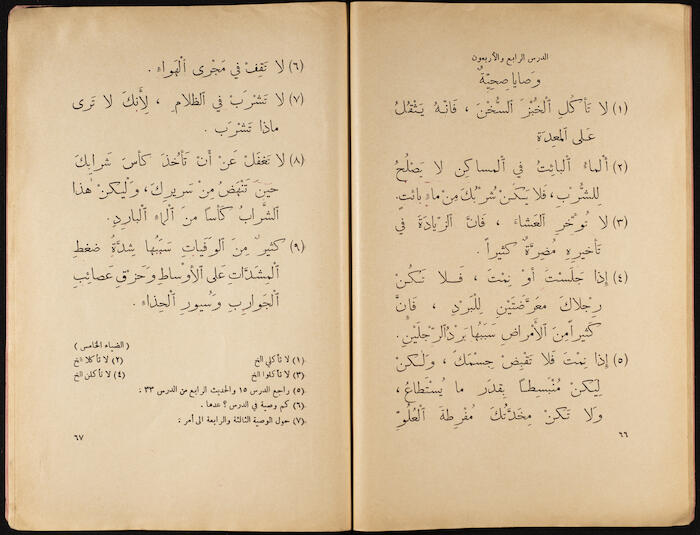 الدرس الرابع والأربعون
وَصايا صِحِيّةٌ
(١) لا تَأْكُلِ ٱلْخُبْزَ ٱلسُّخْنَ ، فَانّهُ يَثْقُلُ
عَلى ٱلْمَعِدَةِ
(٢) أَلماءُ ٱلْبائِتُ في ٱلْمَساكِنِ لا يَصْلُحُ
لِلشُّرْبِ، فَلا يَكُنْ شُرْبُكَ مِنْ ماءٍ بائتٍ.
(٣) لا تُؤَخِّرِ ٱلْعَشاءَ ، فَانَّ ٱلزِّيادَةَ في
تَأخيرِهِ مُضِرَّةٌ كثيراً .
(٤) إِذا جَلَسْتَ أَوْ نِمْتَ ، فَلا تَكُنْ
رِجْلاكَ مُعَرَّضَتَيْنِ لِلْبَرْدِ ، فَانَّ
كثيراً مِنَ ٱلأَمْراضِ سَبَبُها بَرْدُ ٱلرِّجْلَيْنِ.
(٥) إِذا نِمْتَ فَلا تَقْبِضْ جِسْمَكَ ، وَلٰكنْ
لِيَكُنْ مُنْبَسِطاً بِقَدَرِ ما يُسْتَطاعُ ،
وَلا تَكُنْ مِخَدَّتُكَ مُفْرِطَةَ ٱلْعُلُوِّ
٦٦
(٦) لا تَقِفْ في مَجْرى ٱلْهَواءِ .
(٧) لا تَشْرَبْ في ٱلظَّلامِ ، لِأَنَّكَ لا تَرى
ماذا تَشْرَبُ .
(٨) لا تَغْفُلْ عَنْ أَنْ تَأْخُذَ كأْسَ شَرابِكَ
حينَ تَنْهَضُ مِنْ سَريرِكَ، وَلْيَكُنْ هٰذا
ٱلشَّرابُ كَأْساً مِنَ ٱلْماءِ ٱلْبارِدِ.
(٩) كثيرٌ مِنَ ٱلْوَفَياتِ سَبَبُها شِدَّةُ ضَغْطِ
ٱلْمِشَدَّاتِ عَلى ٱلأَوْساطِ وَحَزْقِ عَصائِبِ
ٱلْجَوارِبِ وَسُيورِ ٱلْحِذاءِ .
( الضياء الخامس )
(١) لا تأكلي الخ (٢) لا تأكلا الخ
(٣) لا تأكلوا الخ (٤) لا تأكلن الخ
(٥) راجع الدرس ١٥ والحديث الرابع من الدرس ٣٣ :
(٦) كم وصية في الدرس ؟ عدها .
(٧) حول الوصية الثالثة والرابعة الى أمر :
٦٧